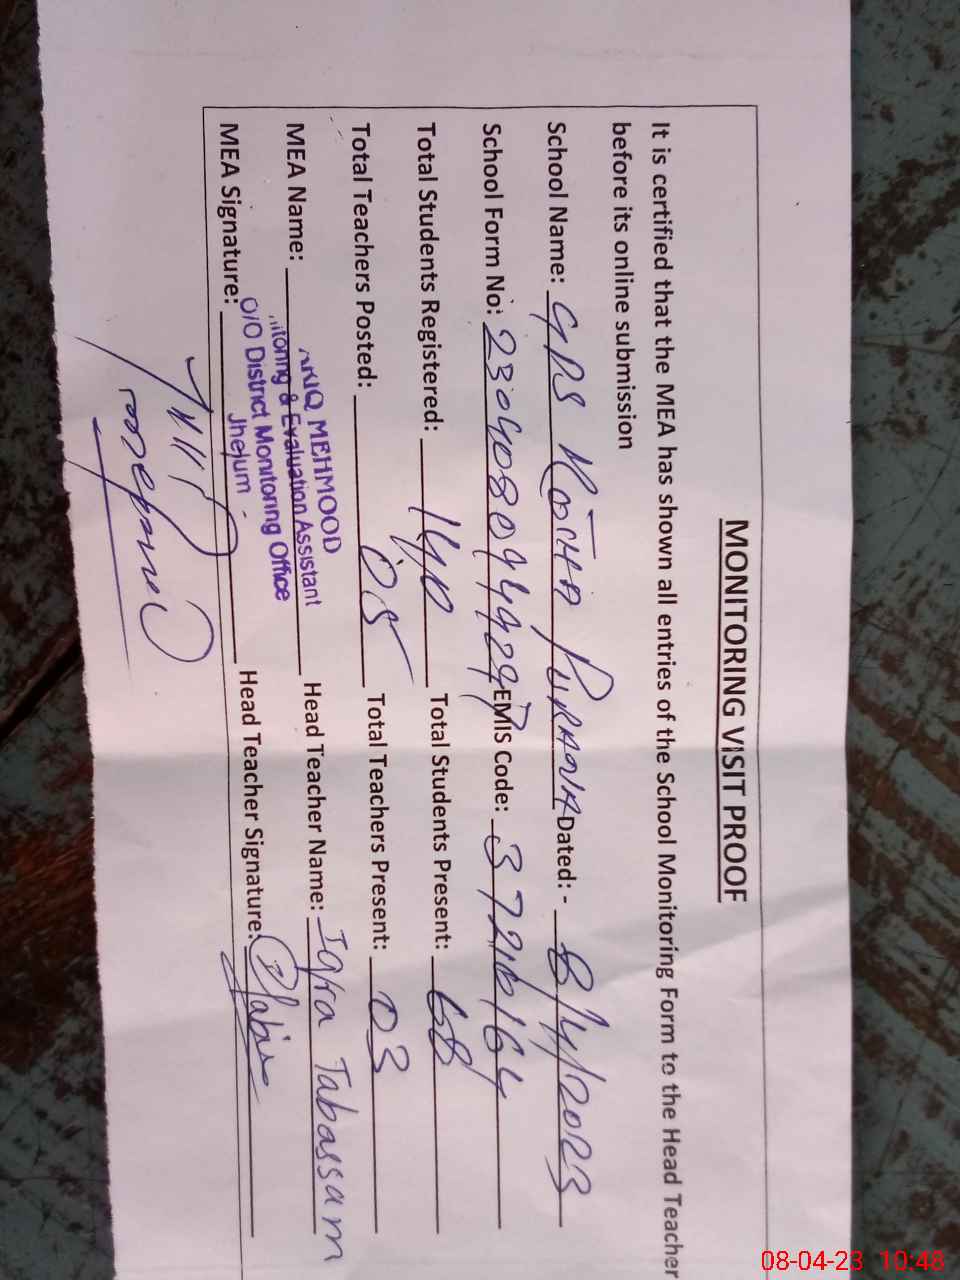 MONITORING VISIT PROOF
It is certified that the MEA has shown all entries of the School Monitoring Form to the Head Teacher
before its online submission
School Name: GPS KOTHA PURANA Dated: - 8/4/2023
School Form No: EMIS Code: 37210164
Total Students Registered: 140 Total Students Present: 68
Total Teachers Posted: 05 Total Teachers Present: 03
MEA Name: MEHMOOD Head Teacher Name: Iqra Tabassam
& Evaluation Assistant
O/O District Monitoring Office
Jhelum
MEA Signature: Head Teacher Signature:
08-04-23 10:48